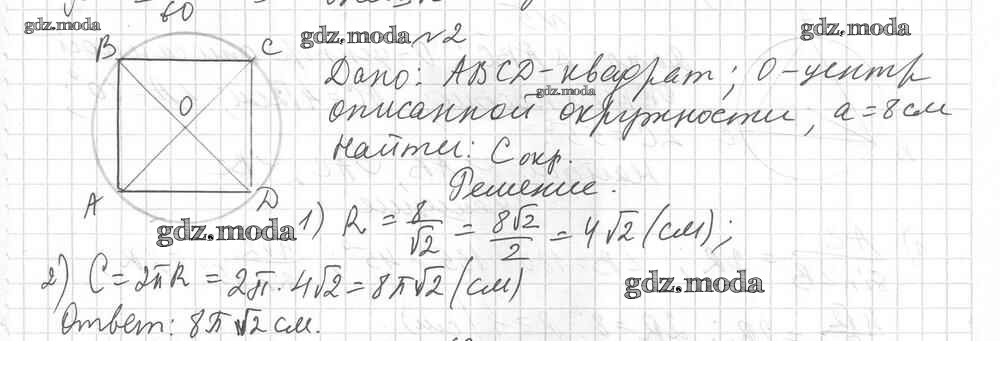 60
gdz.moda gdz.moda №2 gdz.moda
B C
Дано: ABCD - квадрат; O - центр
gdz.moda
O описанной окружности, a = 8 см
Найти: C окр.
Решение.
A D
gdz.moda 1) R = 8/√2 = 8√2/2 = 4√2 (см);
2) C = 2πR = 2π · 4√2 = 8π√2 (см) gdz.moda
Ответ: 8π√2 см.